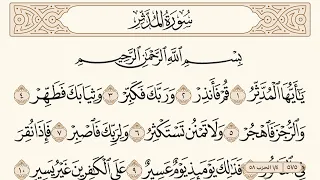 سُورَةُ المُدَّثِّرِ
بِسْمِ اللَّهِ الرَّحْمَٰنِ الرَّحِيمِ
يَا أَيُّهَا الْمُدَّثِّرُ ١ قُمْ فَأَنذِرْ ٢ وَرَبَّكَ فَكَبِّرْ ٣ وَثِيَابَكَ فَطَهِّرْ ٤
وَالرُّجْزَ فَاهْجُرْ ٥ وَلَا تَمْنُن تَسْتَكْثِرُ ٦ وَلِرَبِّكَ فَاصْبِرْ ٧ فَإِذَا نُقِرَ
فِي النَّاقُورِ ٨ فَذَٰلِكَ يَوْمَئِذٍ يَوْمٌ عَسِيرٌ ٩ عَلَى الْكَافِرِينَ غَيْرُ يَسِيرٍ ١٠
٥٧٥
الحزب ٥٨